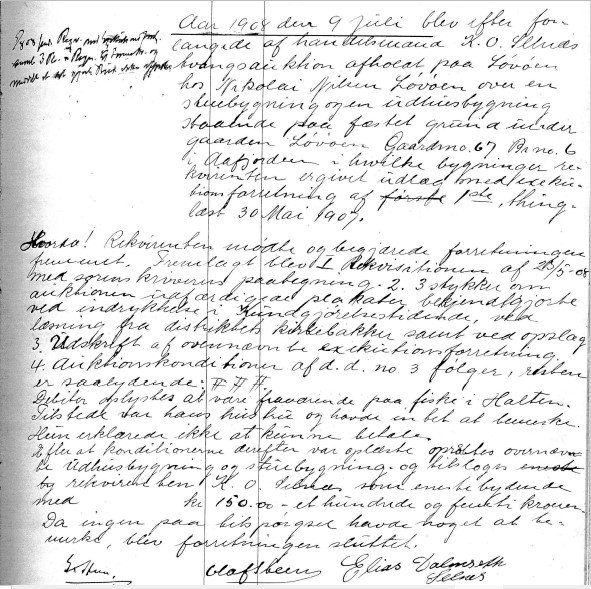 Aar 1908 den 9 juli blev efter for-
langende af handelsmand K. O. Selnæs
tvangsauktion afholdt paa Løvøen
hos Nikolai Nilsen Løvøen over en
stuebygning og en udhusbygning
staaende paa fæstet grund under
gaarden Løvøen Gaardsno. 67 Br.no. 6
i Aafjorden i hvilke bygninger re-
kvirenten er givet udlæg med exeku-
tionsforretning af første pste, thing-
læst 30 Mai 1907.
Hvorda! Rekvirenten mødte og begjærede forretningen
fremmet. Fremlagt blev I Rekvisitionen af /5-08
med sorenskriverens paategning. 2. 3 stykker om
auktionen udfærdigede plakater bekjendtgjorte
ved indrykkelse i Kundgjørelsestidende, ved
læsning fra distriktets kirkebakker samt ved opslag
3. Udskrift af ovennævnte exekutionsforretning.
4. Auktionskonditioner af d. d. no. 3 følger, resten
er saalydende: # # #.
Debitor oplystes at være fraværende paa fiske i Halten.
Tilstede var hans hustru og havde intet at bemerke.
Hun erklærede ikke at kunne betale.
Efter at konditionerne derefter var oplæste opråbtes ovennævn-
te udhusbygning og stuebygning og tilsloges eneste
by rekvirenten K. O. Selnæs som enestebydende
med kr 150.00 - et hundrede og femti kroner
Da ingen paa tilspørgsel havde noget at be-
merke, blev forretningen sluttet.
Olaf Steen Elias Dalmseth
Selnæs